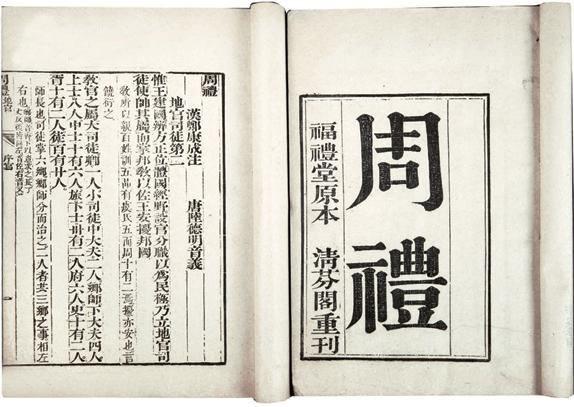 周禮
福禮堂原本 清芬閣重刊
周禮
漢鄭康成注 唐陸德明音義
地官司徒第二
惟王建國辨方正位體國經野設官分職以爲民極乃立地官司
徒使帥其屬而掌邦敎以佐王安擾邦國
敎所以親百姓訓五品有虞氏五而周十有二焉擾亦安也言
饒衍之
敎官之屬大司徒卿一人小司徒中大夫二人鄉師下大夫四人
上士八人中士十有六人旅下士卅有二人府六人史十有二人
胥十有二人徒百有廿人
師長也司徒掌六鄉鄉師分而治之二人者共三鄉之事相左
右也
周禮地官 序官